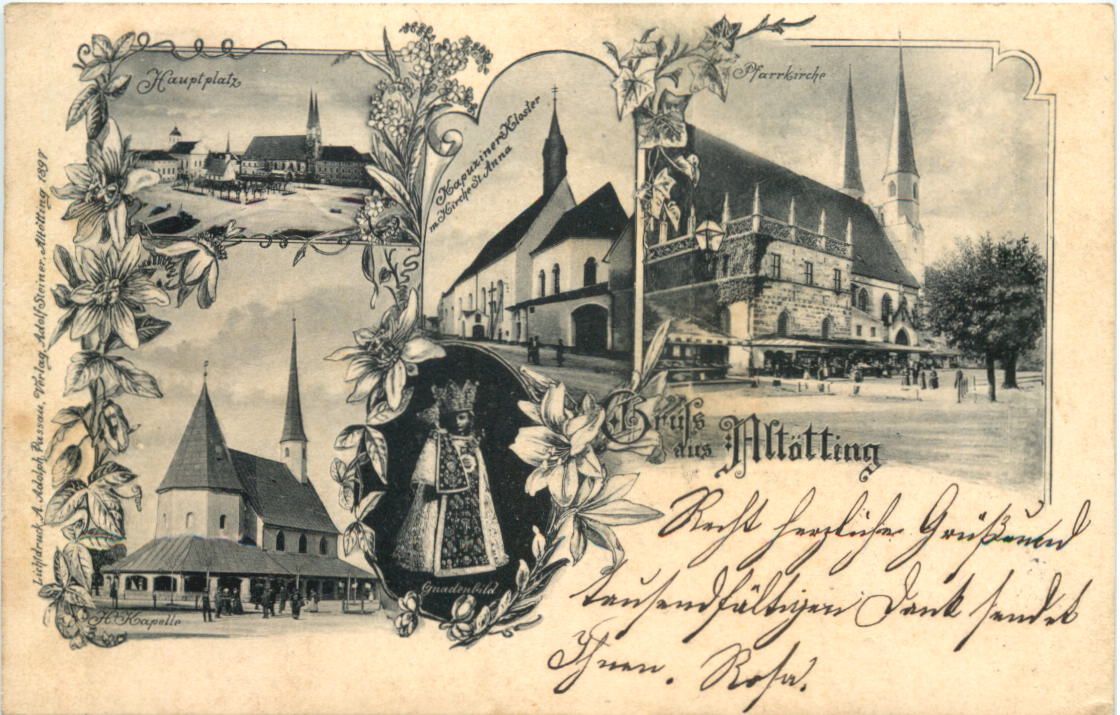 Hauptplatz
Kapuziner Kloster
m. Kirche St. Anna
Pfarrkirche
Lichtdruck A. Adolph, Passau, Verlag Adolf Steiner, Altötting 1897
H. Kapelle
Gnadenbild
Gruſs
aus Altötting
Recht herzliche Grüße und
tausendfältigen Dank sendet
Ihnen. Rosa.